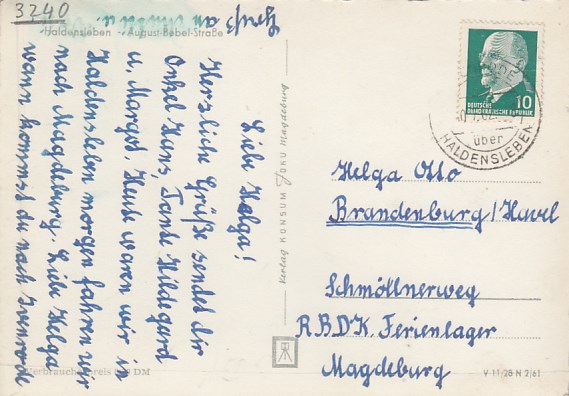 3240
Haldensleben August-Bebel-Straße
Liebe Helga!
Herzliche Grüße sendet dir
Onkel Hans, Tante Hildegard
u. Margot. Heute waren wir in
Haldensleben morgen fahren wir
nach Magdeburg. Liebe Helga
wann kommst du nach Ivenrode
Verlag KONSUM FOKU Magdeburg
10
DEUTSCHE
DEMOKRATISCHE REPUBLIK
über
HALDENSLEBEN
Helga Otto
Brandenburg/Havel
Schmöllnerweg
R.B.D.K. Ferienlager
Magdeburg
Verbraucherpreis DM
V 11-28 N 2/61